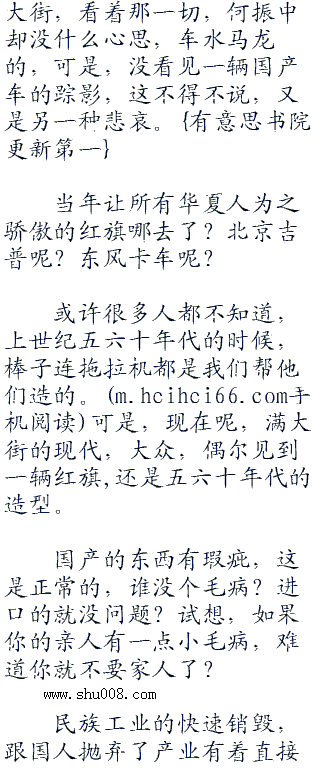 大街，看着那一切，何振中
却没什么心思，车水马龙
的，可是，没看见一辆国产
车的踪影，这不得不说，又
是另一种悲哀。{有意思书院
更新第一}
当年让所有华夏人为之
骄傲的红旗哪去了？北京吉
普呢？东风卡车呢？
或许很多人都不知道，
上世纪五六十年代的时候，
棒子连拖拉机都是我们帮他
们造的。(m.hcihci66.com手
机阅读)可是，现在呢，满大
街的现代，大众，偶尔见到
一辆红旗,还是五六十年代的
造型。
国产的东西有瑕疵，这
是正常的，谁没个毛病？进
口的就没问题？试想，如果
你的亲人有一点小毛病，难
道你就不要家人了？
www.shu008.com
民族工业的快速销毁，
跟国人抛弃了产业有着直接